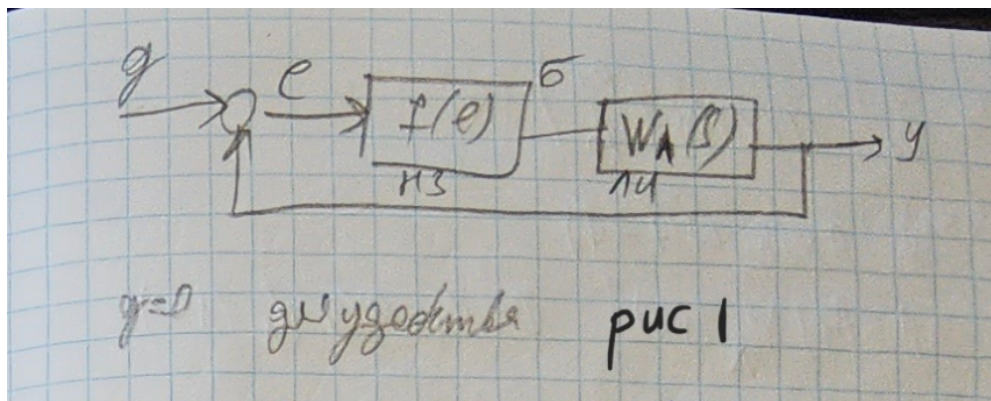 g e f(e) б Wл(s) y
НЗ ЛЧ
g=0 для удобства рис 1